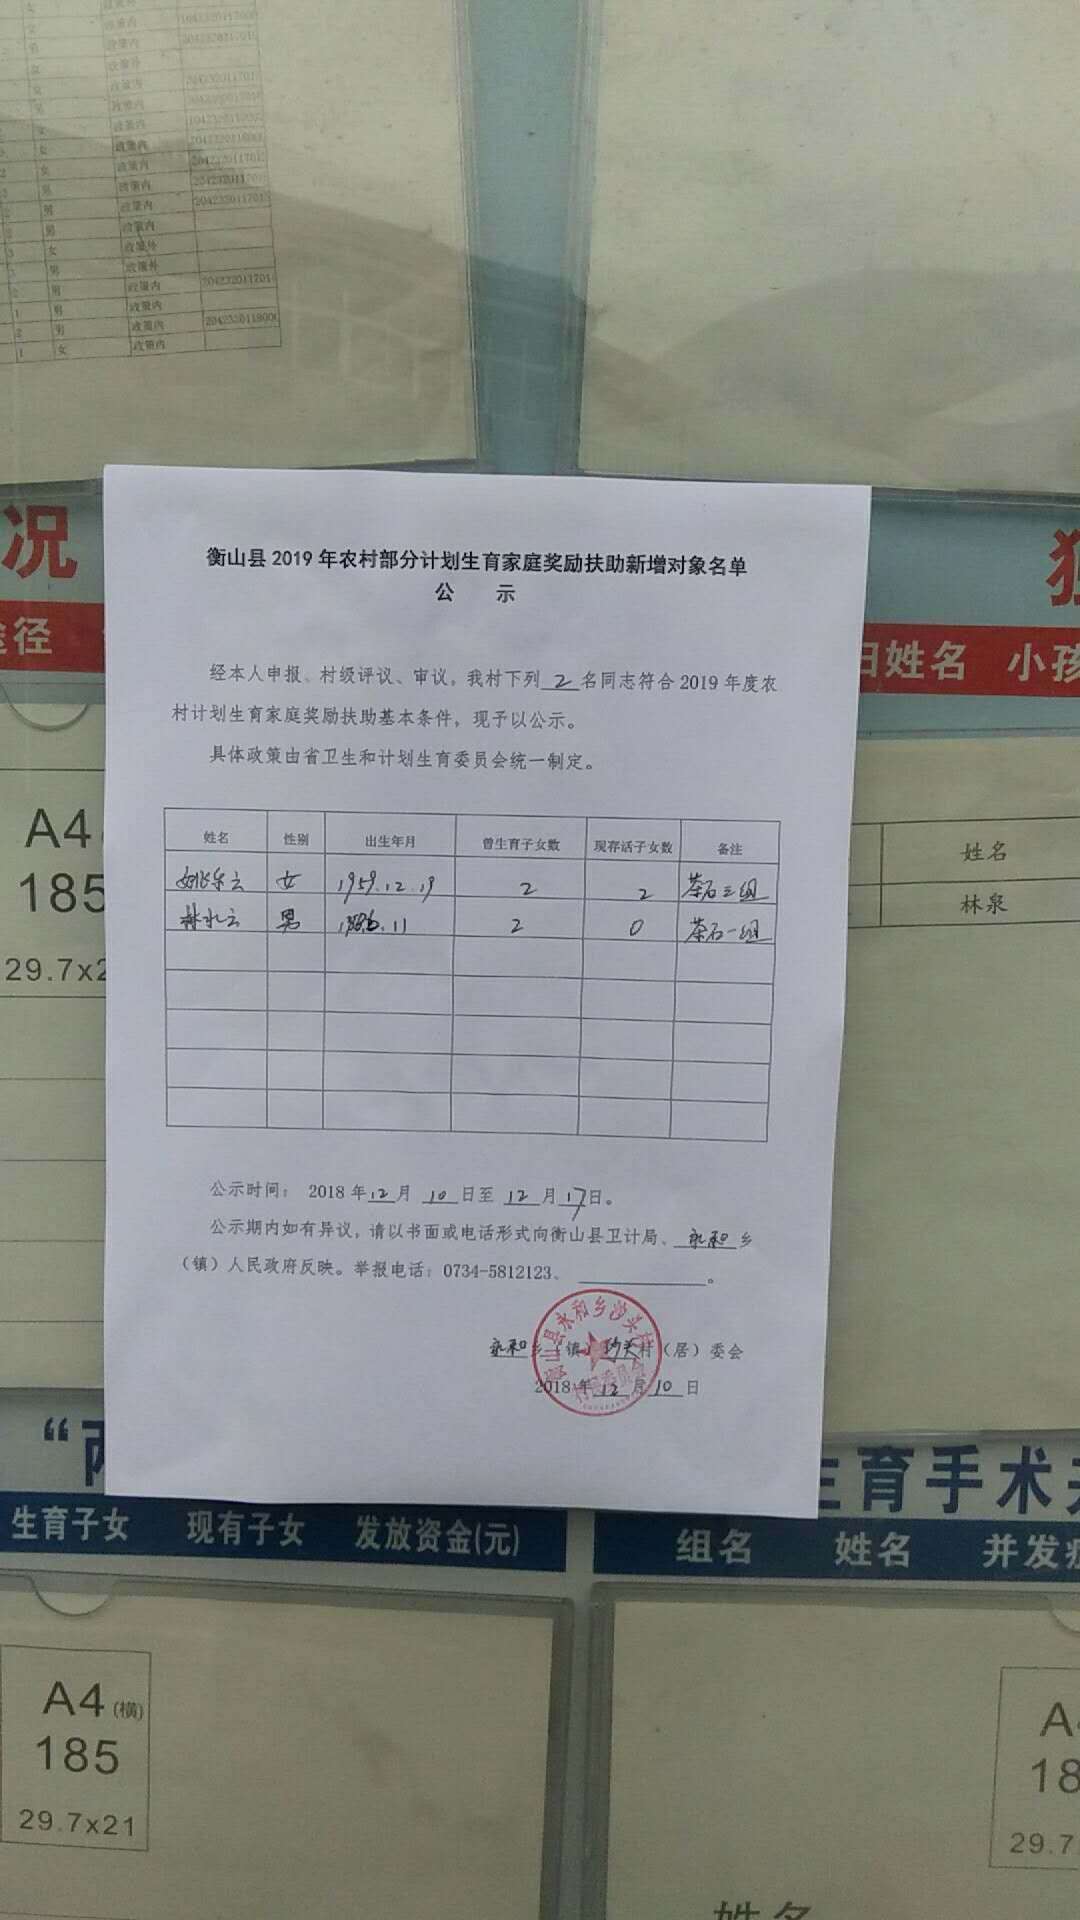 女 政策内 204232011701
男 政策内 204232011701
男 政策内 2042320117013
男 政策内
3 女 政策外
男 政策外
2 男 政策内 204232011701
1 男 政策内
2 男 政策内 204232011800
1 女 政策内
况
途径
姓名 小孩
A4
185
29.7x2
姓名
林泉
衡山县2019年农村部分计划生育家庭奖励扶助新增对象名单
公 示
经本人申报、村级评议、审议，我村下列 2 名同志符合2019年度农
村计划生育家庭奖励扶助基本条件，现予以公示。
具体政策由省卫生和计划生育委员会统一制定。
姓名 性别 出生年月 曾生育子女数 现存活子女数 备注
女 1959.12.19 2 2 茶石三组
林水云 男 11 2 0 茶石一组
公示时间： 2018年12月 10 日至 12 月17日。
公示期内如有异议，请以书面或电话形式向衡山县卫计局、永和乡
（镇）人民政府反映。举报电话：0734-5812123、 。
永和乡（镇）沙头村（居）委会
2018年 12 月 10 日
衡山县永和乡沙头村
村民委员会
“两
生育子女 现有子女 发放资金(元)
生育手术并
组名 姓名 并发症
A4(横)
185
29.7x21
A
18
29.7
姓名